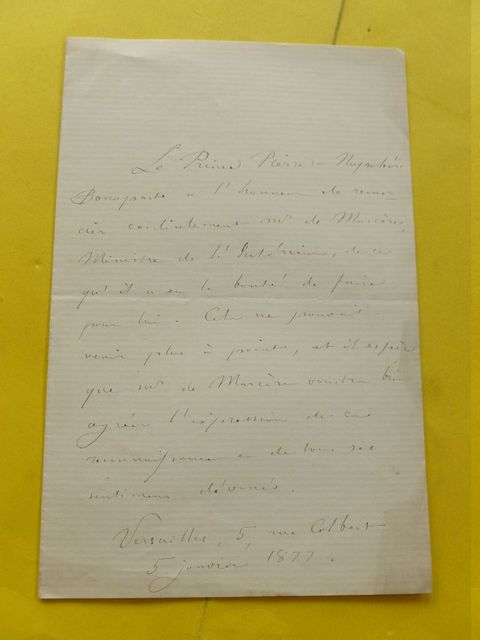 Le Prince Pierre-Napoléon
Bonaparte a l'honneur de remer-
cier cordialement Mr de Marcère,
Ministre de l'Intérieur, de ce
qu'il a eu la bonté de faire
pour lui. Cela ne pouvait
venir plus à pointe, et il espère
que Mr de Marcère voudra bien
agréer l'expression de sa
reconnaissance et de tous ses
sentimens dévoués.
Versailles, 5, rue Colbert
5 janvier 1877.